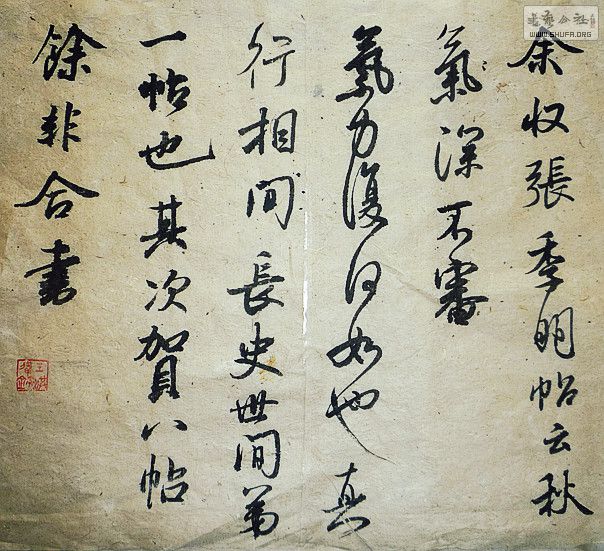 余收張季明帖云秋
氣深不審
氣力復何如也真
行相間長史世間第
一帖也其次賀八帖
餘非合書
書藝公社
WWW.SHUFA.ORG